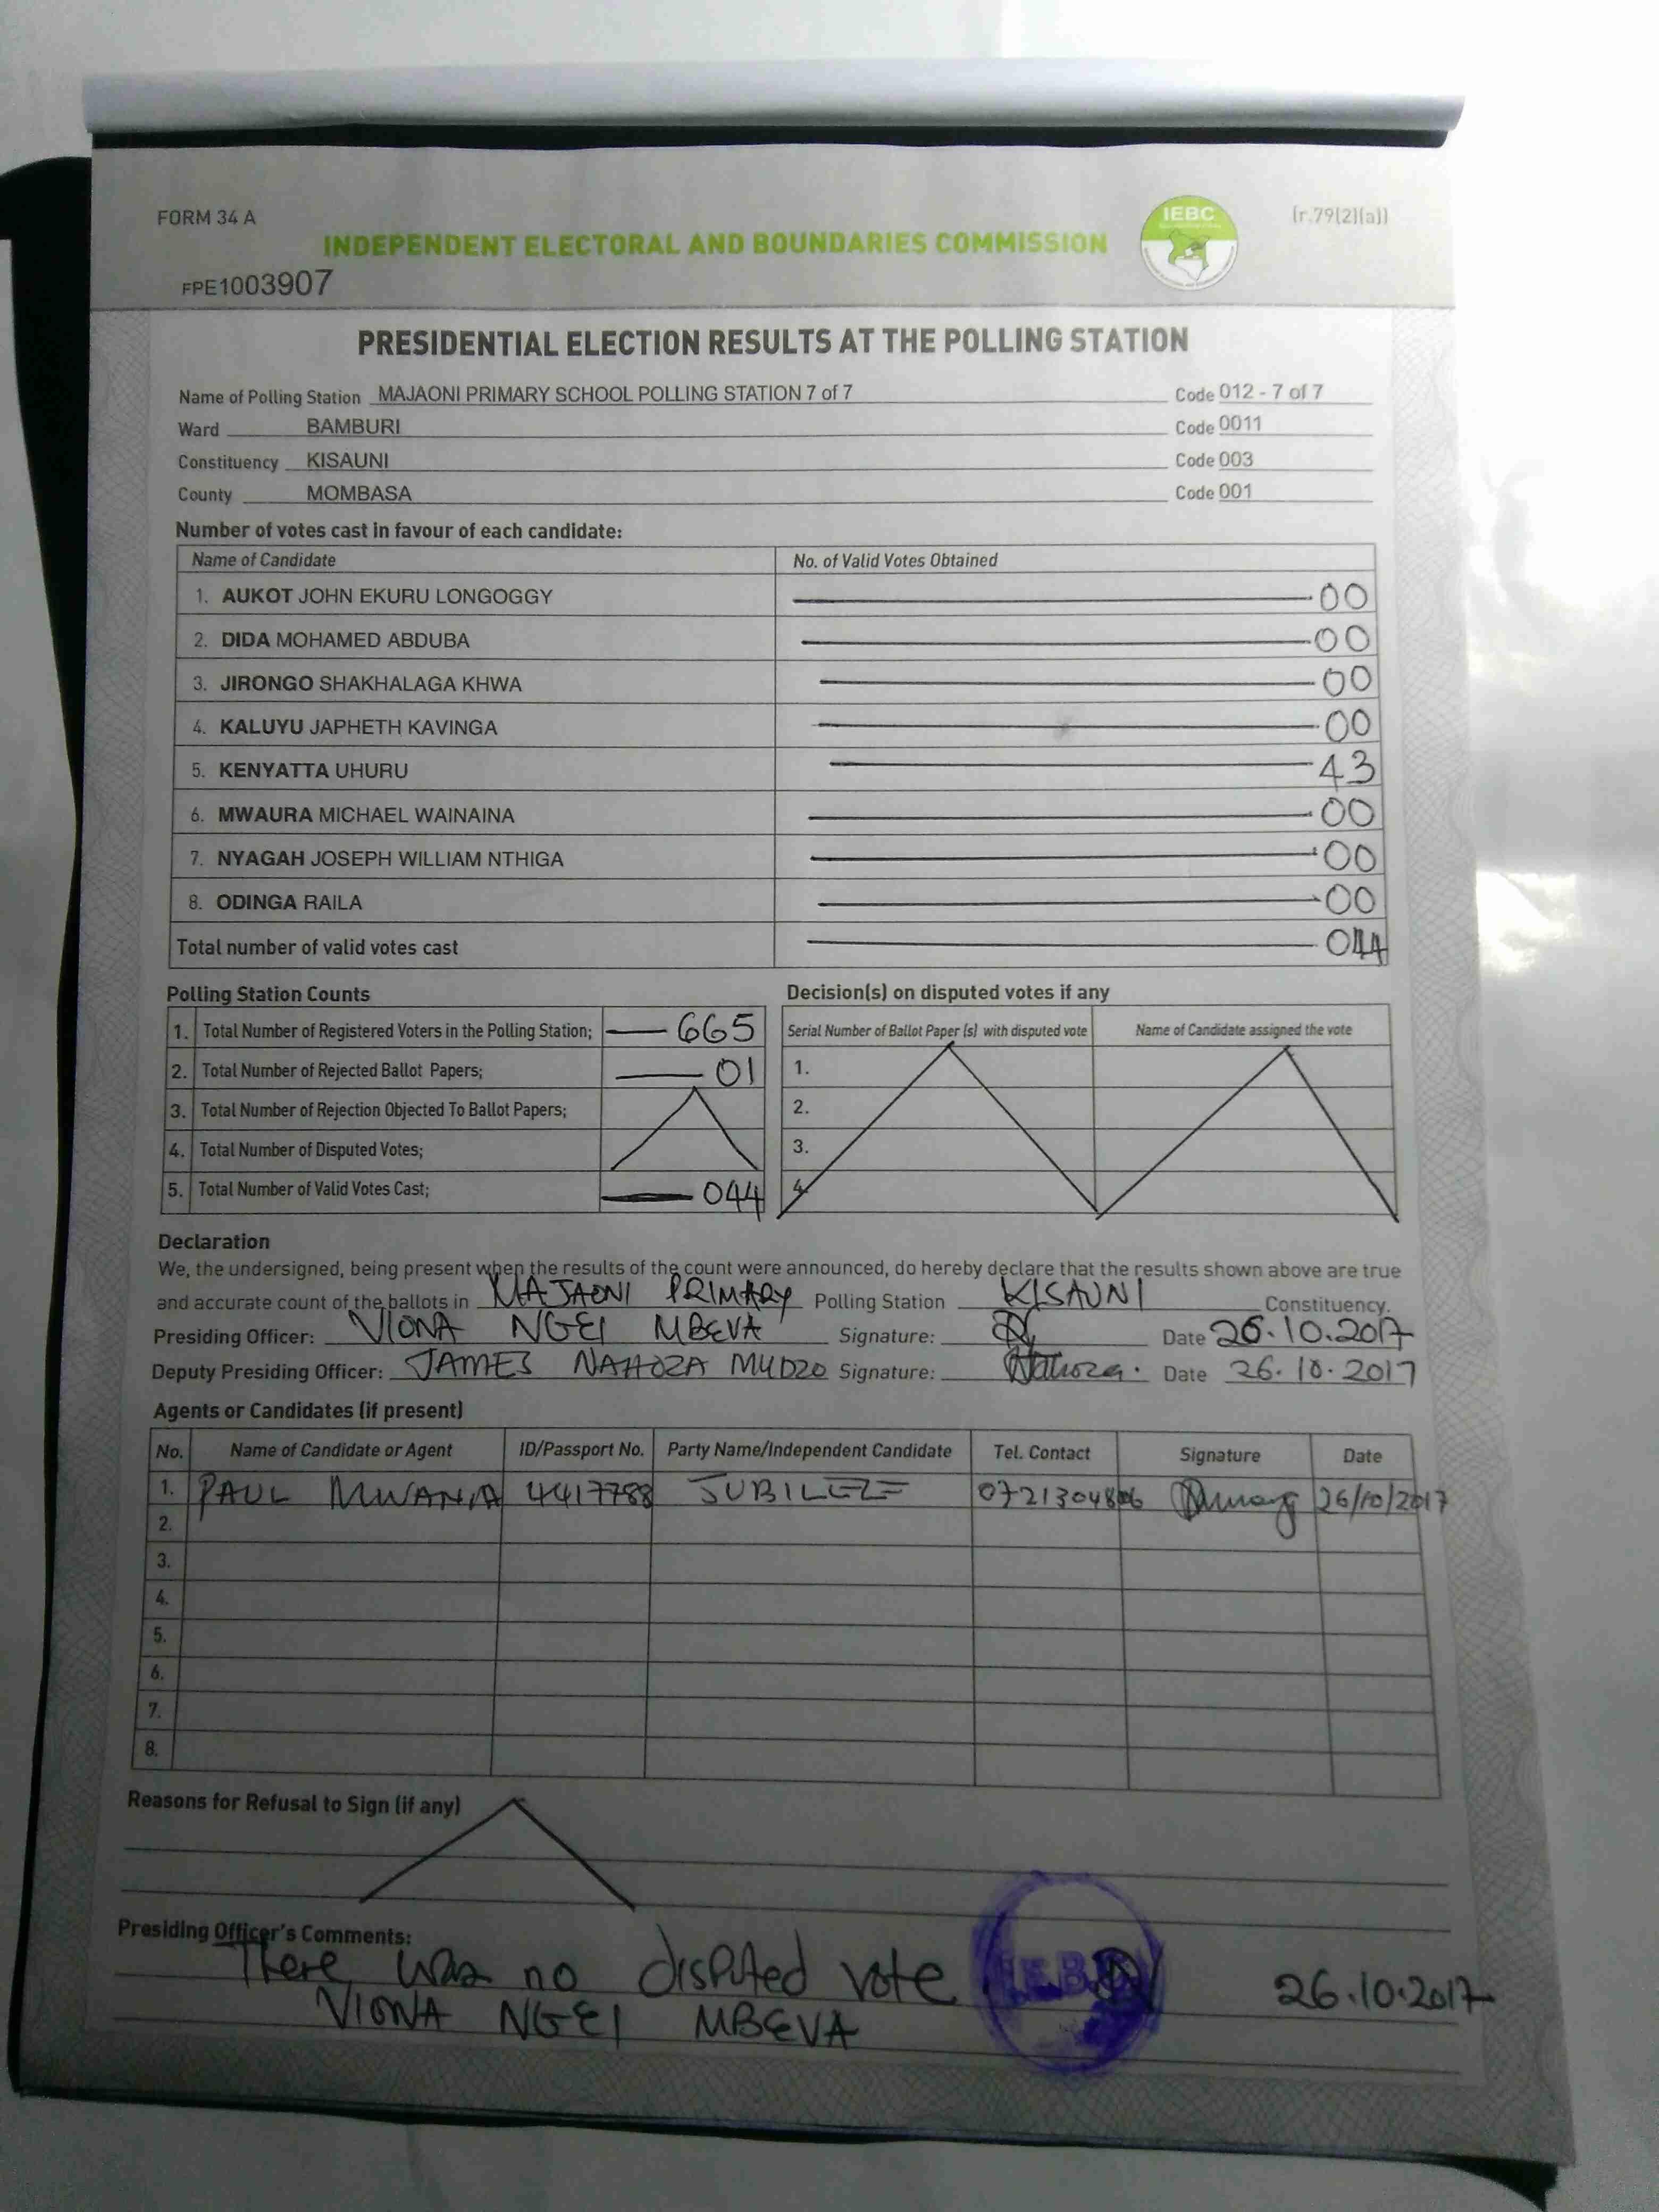 FORM 34 A
IEBC
(r.79(2)(a))
INDEPENDENT ELECTORAL AND BOUNDARIES COMMISSION
FPE1003907
PRESIDENTIAL ELECTION RESULTS AT THE POLLING STATION
Name of Polling Station MAJAONI PRIMARY SCHOOL POLLING STATION 7 of 7 Code 012 - 7 of 7
Ward BAMBURI Code 0011
Constituency KISAUNI Code 003
County MOMBASA Code 001
Number of votes cast in favour of each candidate:
Name of Candidate No. of Valid Votes Obtained
1. AUKOT JOHN EKURU LONGOGGY 00
2. DIDA MOHAMED ABDUBA 00
3. JIRONGO SHAKHALAGA KHWA 00
4. KALUYU JAPHETH KAVINGA 00
5. KENYATTA UHURU 43
6. MWAURA MICHAEL WAINAINA 00
7. NYAGAH JOSEPH WILLIAM NTHIGA 00
8. ODINGA RAILA 00
Total number of valid votes cast 044
Polling Station Counts
1. Total Number of Registered Voters in the Polling Station; 665
2. Total Number of Rejected Ballot Papers; 01
3. Total Number of Rejection Objected To Ballot Papers;
4. Total Number of Disputed Votes;
5. Total Number of Valid Votes Cast; 044
Decision(s) on disputed votes if any
Serial Number of Ballot Paper (s) with disputed vote Name of Candidate assigned the vote
1.
2.
3.
4.
Declaration
We, the undersigned, being present when the results of the count were announced, do hereby declare that the results shown above are true
and accurate count of the ballots in MAJAONI PRIMARY Polling Station KISAUNI Constituency.
Presiding Officer: VIONA NGEI MBEVA Signature: Date 26.10.2017
Deputy Presiding Officer: JAMES NAHOZA MUDZO Signature: Nahoza. Date 26.10.2017
Agents or Candidates (if present)
No. Name of Candidate or Agent ID/Passport No. Party Name/Independent Candidate Tel. Contact Signature Date
1. PAUL MWANIA 4417788 JUBILEE 26/10/2017
2.
3.
4.
5.
6.
7.
8.
Reasons for Refusal to Sign (if any)
Presiding Officer's Comments:
There was no disputed vote. IEBC 26.10.2017
VIONA NGEI MBEVA